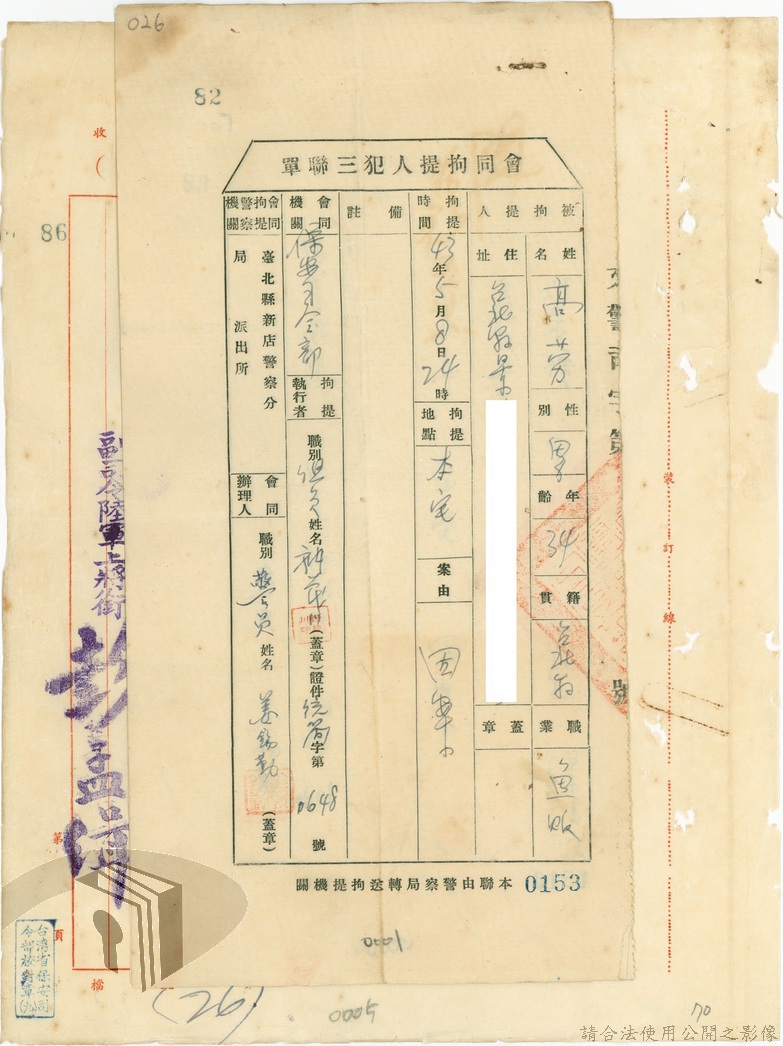 026
82
會同拘提人犯三聯單
被拘提人
姓名
高芳
性別
男
年齡
34
籍貫
台北縣
職業
魚販
住址
台北縣景
蓋章
拘提時間
43年5月8日24時
拘提地點
本宅
案由
備註
會同機關
保安司令部
拘提執行者
職別 組員 姓名
(蓋章)證件
字第0648號
會同拘提警察機關
臺北縣新店警察分局
派出所
會同辦理人
職別 警員 姓名 姜錫勤 (蓋章)
本聯由警察局轉送拘提機關
0153
號
裝訂線
收
(
86
副司令陸軍上將銜
彭孟緝
第
頁
檔
台灣省保安司令部校對章(九)
(26)
1000
0005
70
請合法使用公開之影像